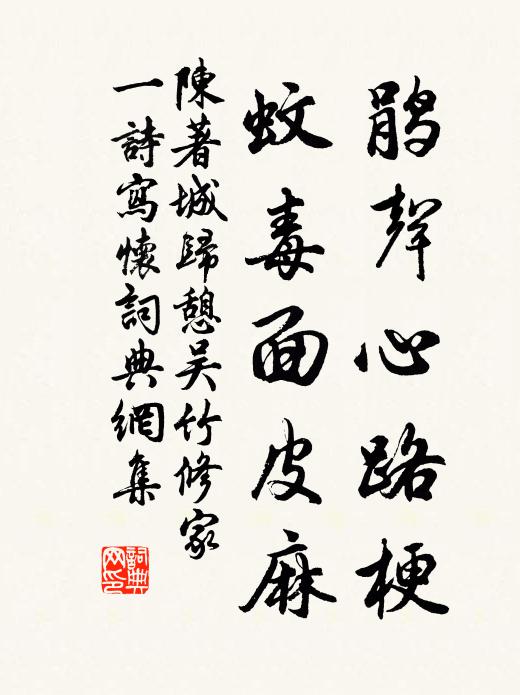 鵑聲心路梗
蚊毒面皮麻
陳著城歸憩吴竹修家
一詩寫懷詞典網集
詞典網印